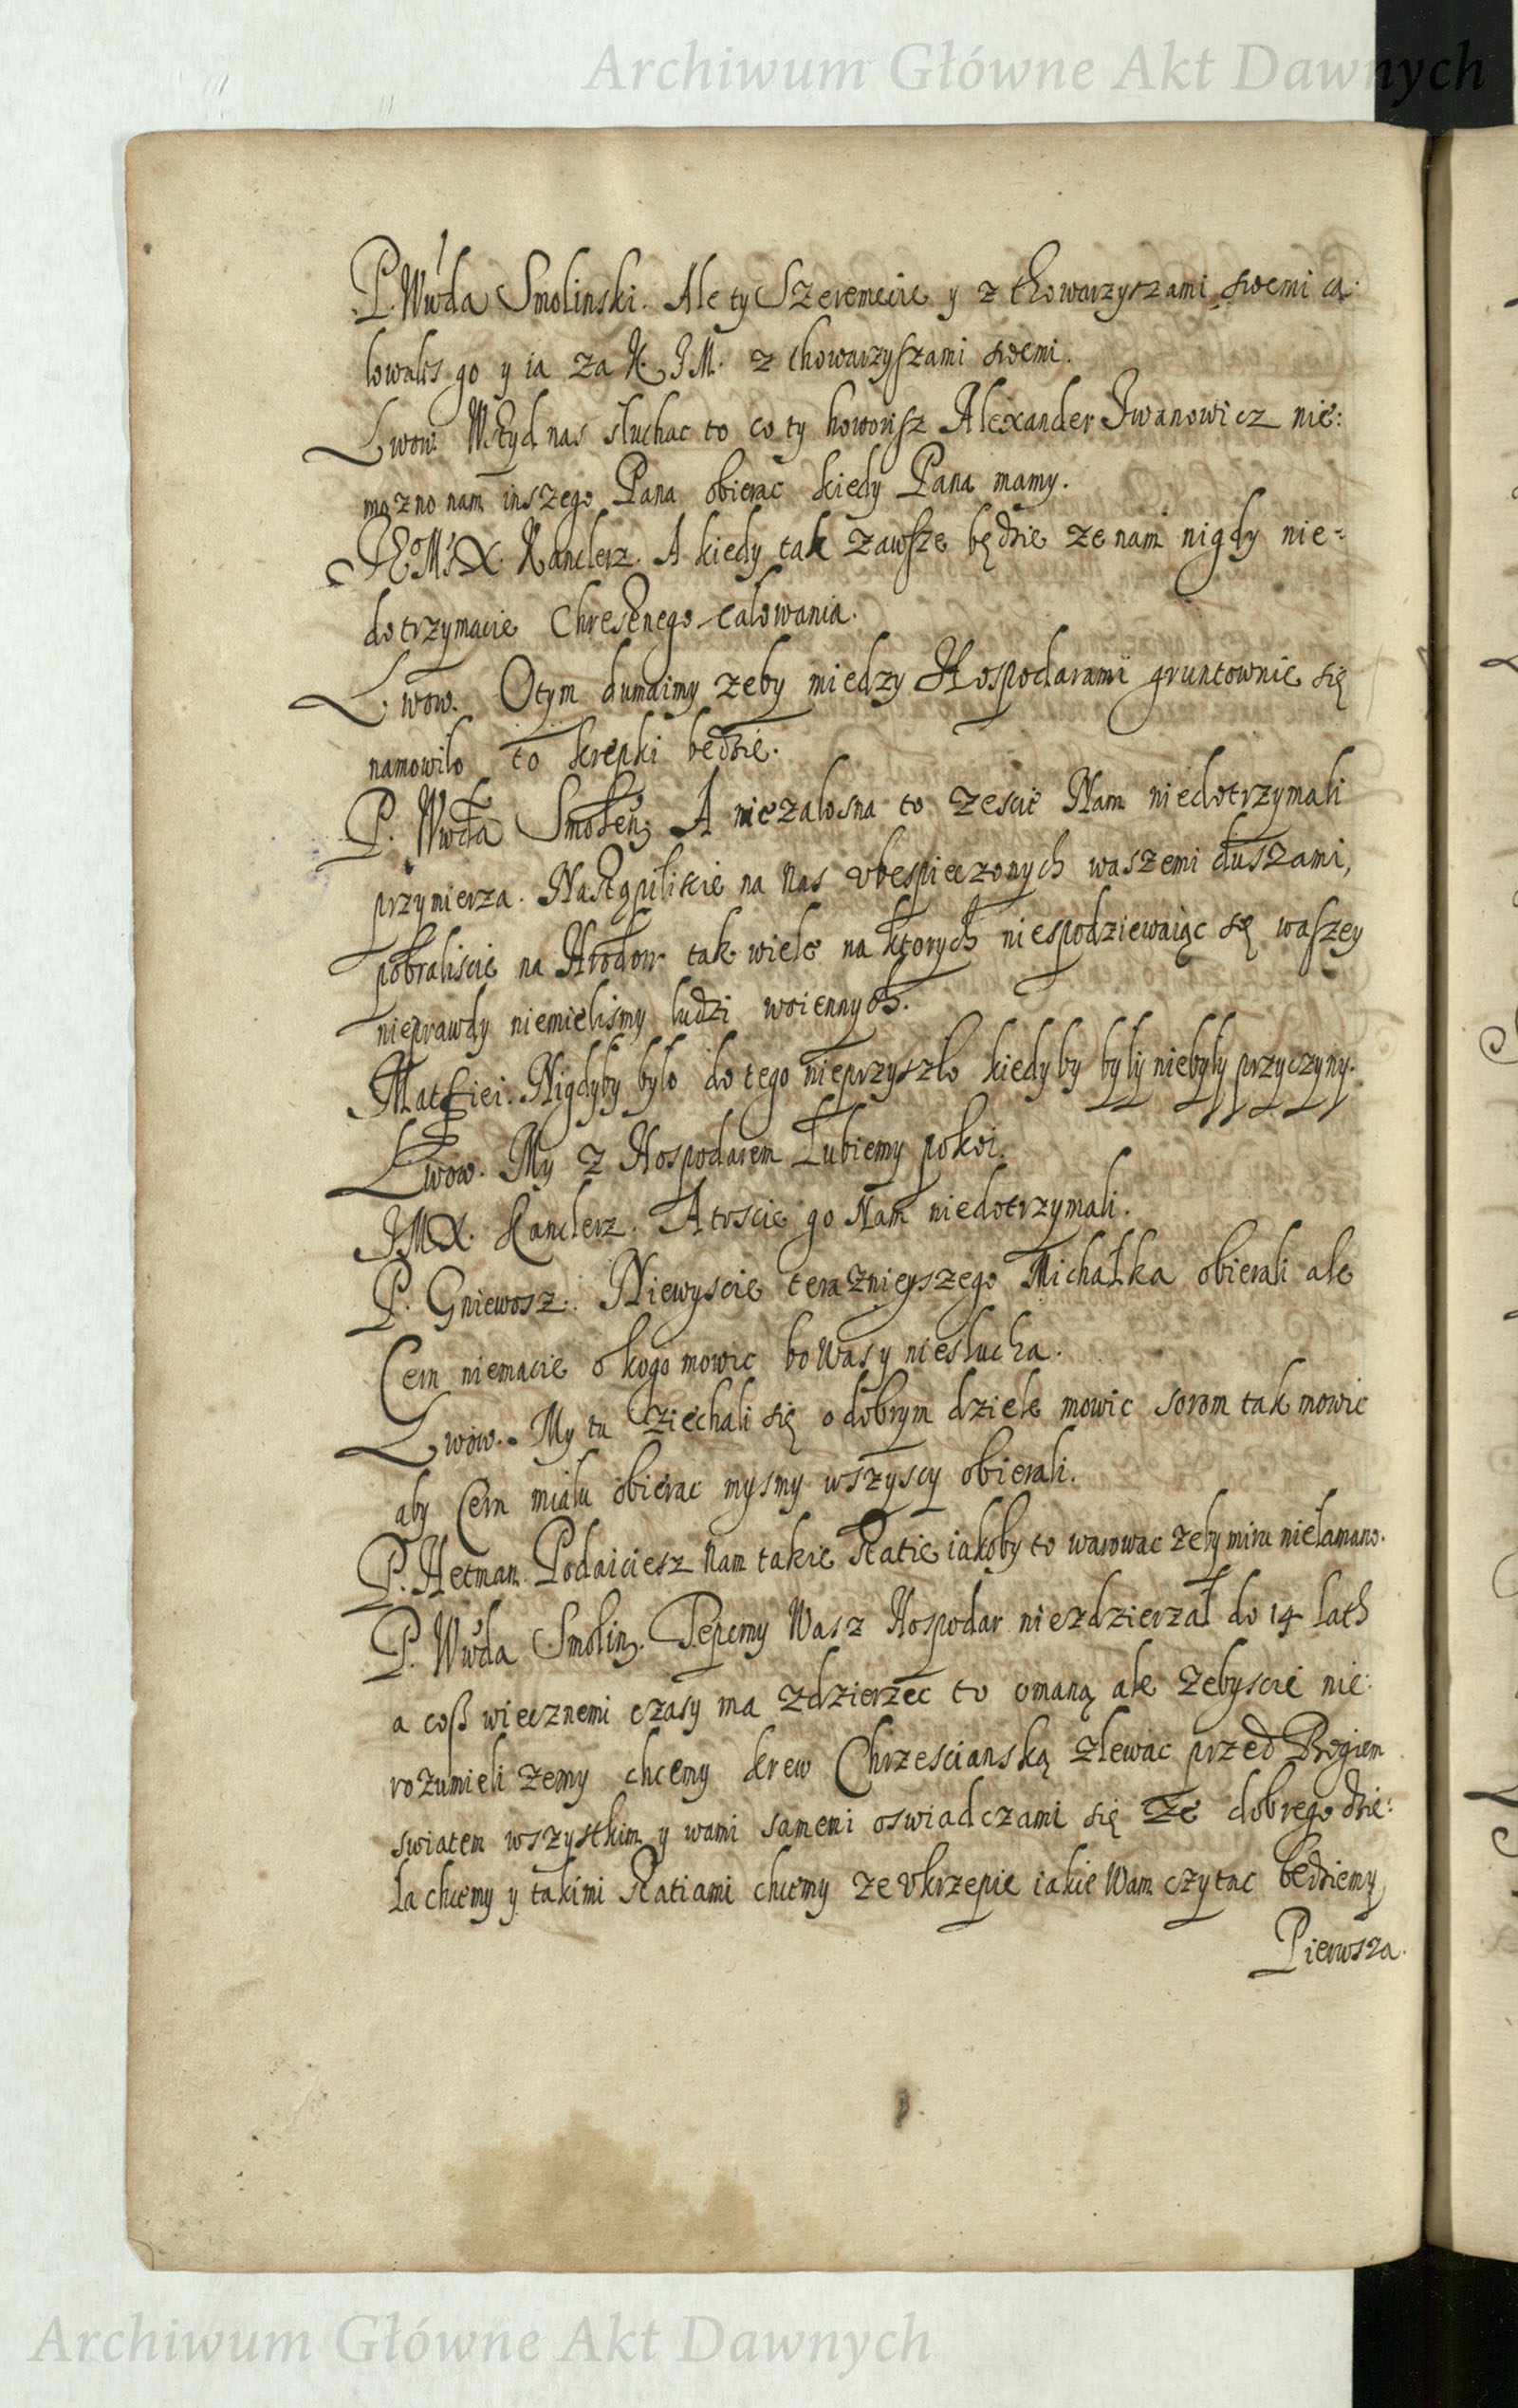 Archiwum Główne Akt Dawnych
P. Wwda Smolinski. Ale ty Szeremecie y z thowarzyszami swemi ca:
lowalis go y ia za K. J M. z thowarzyszami swemi.
Lwow. Wstyd nas słuchac to co ty howorisz Alexander Iwanowicz nie:
mozno nam inszego Pana obierac kiedy Pana mamy.
Kanclerz. A kiedy tak zawsze będzie ze nam nigdy nie=
dotrzymacie Chrestnego calowania.
Lwow. Otym dumaimy zeby miedzy Hospodarami gruntownie się
namowiło to krepki będzie.
P. Wwda Smoleń. A niezalosna to zescie Nam niedotrzymali
przymierza. Nastąpiliscie na Nas vbespieczonych waszemi duszami,
pobraliscie na Hrodow tak wiele na ktorych niespodziewaiąc się waszey
nieprawdy niemielismy ludzi woiennych.
Matfiei. Nigdyby było do tego nieprzyszło kiedyby były niebyły przyczyny.
Lwow. My z Hospodarem Lubiemy pokoi.
JMX. Kanclerz. A toscie go Nam niedotrzymali.
P. Gniewosz. Niewyscie teraznieyszego Michałka obierali ale
Cern niemacie o kogo mowic bo Wasy niesłucha.
Lwow. My tu ziechali się o dobrym dziele mowic sorom tak mowic
aby Cern miała obierac mysmy wszyscy obierali.
P. Hetman. Podaiciesz Nam takie Ratie iakoby to warowac zeby miru nielamano.
P. Wwda Smolin. Pepemy Wasz Hospodar niezdzierzał do 14 lath
a coß wiecznemi czasy ma zdzierzec to omaną ale zebyscie nie:
rozumieli zemy chcemy krew Chrzescianską zlewac przed Bogiem
swiatem wszystkim y wami samemi oswiadczami się ze dobrego dzie:
la chcemy y takimi Ratiami chcemy ze vkrzepie iakie Wam czytac będziemy
Pierwsza.
Archiwum Główne Akt Dawnych